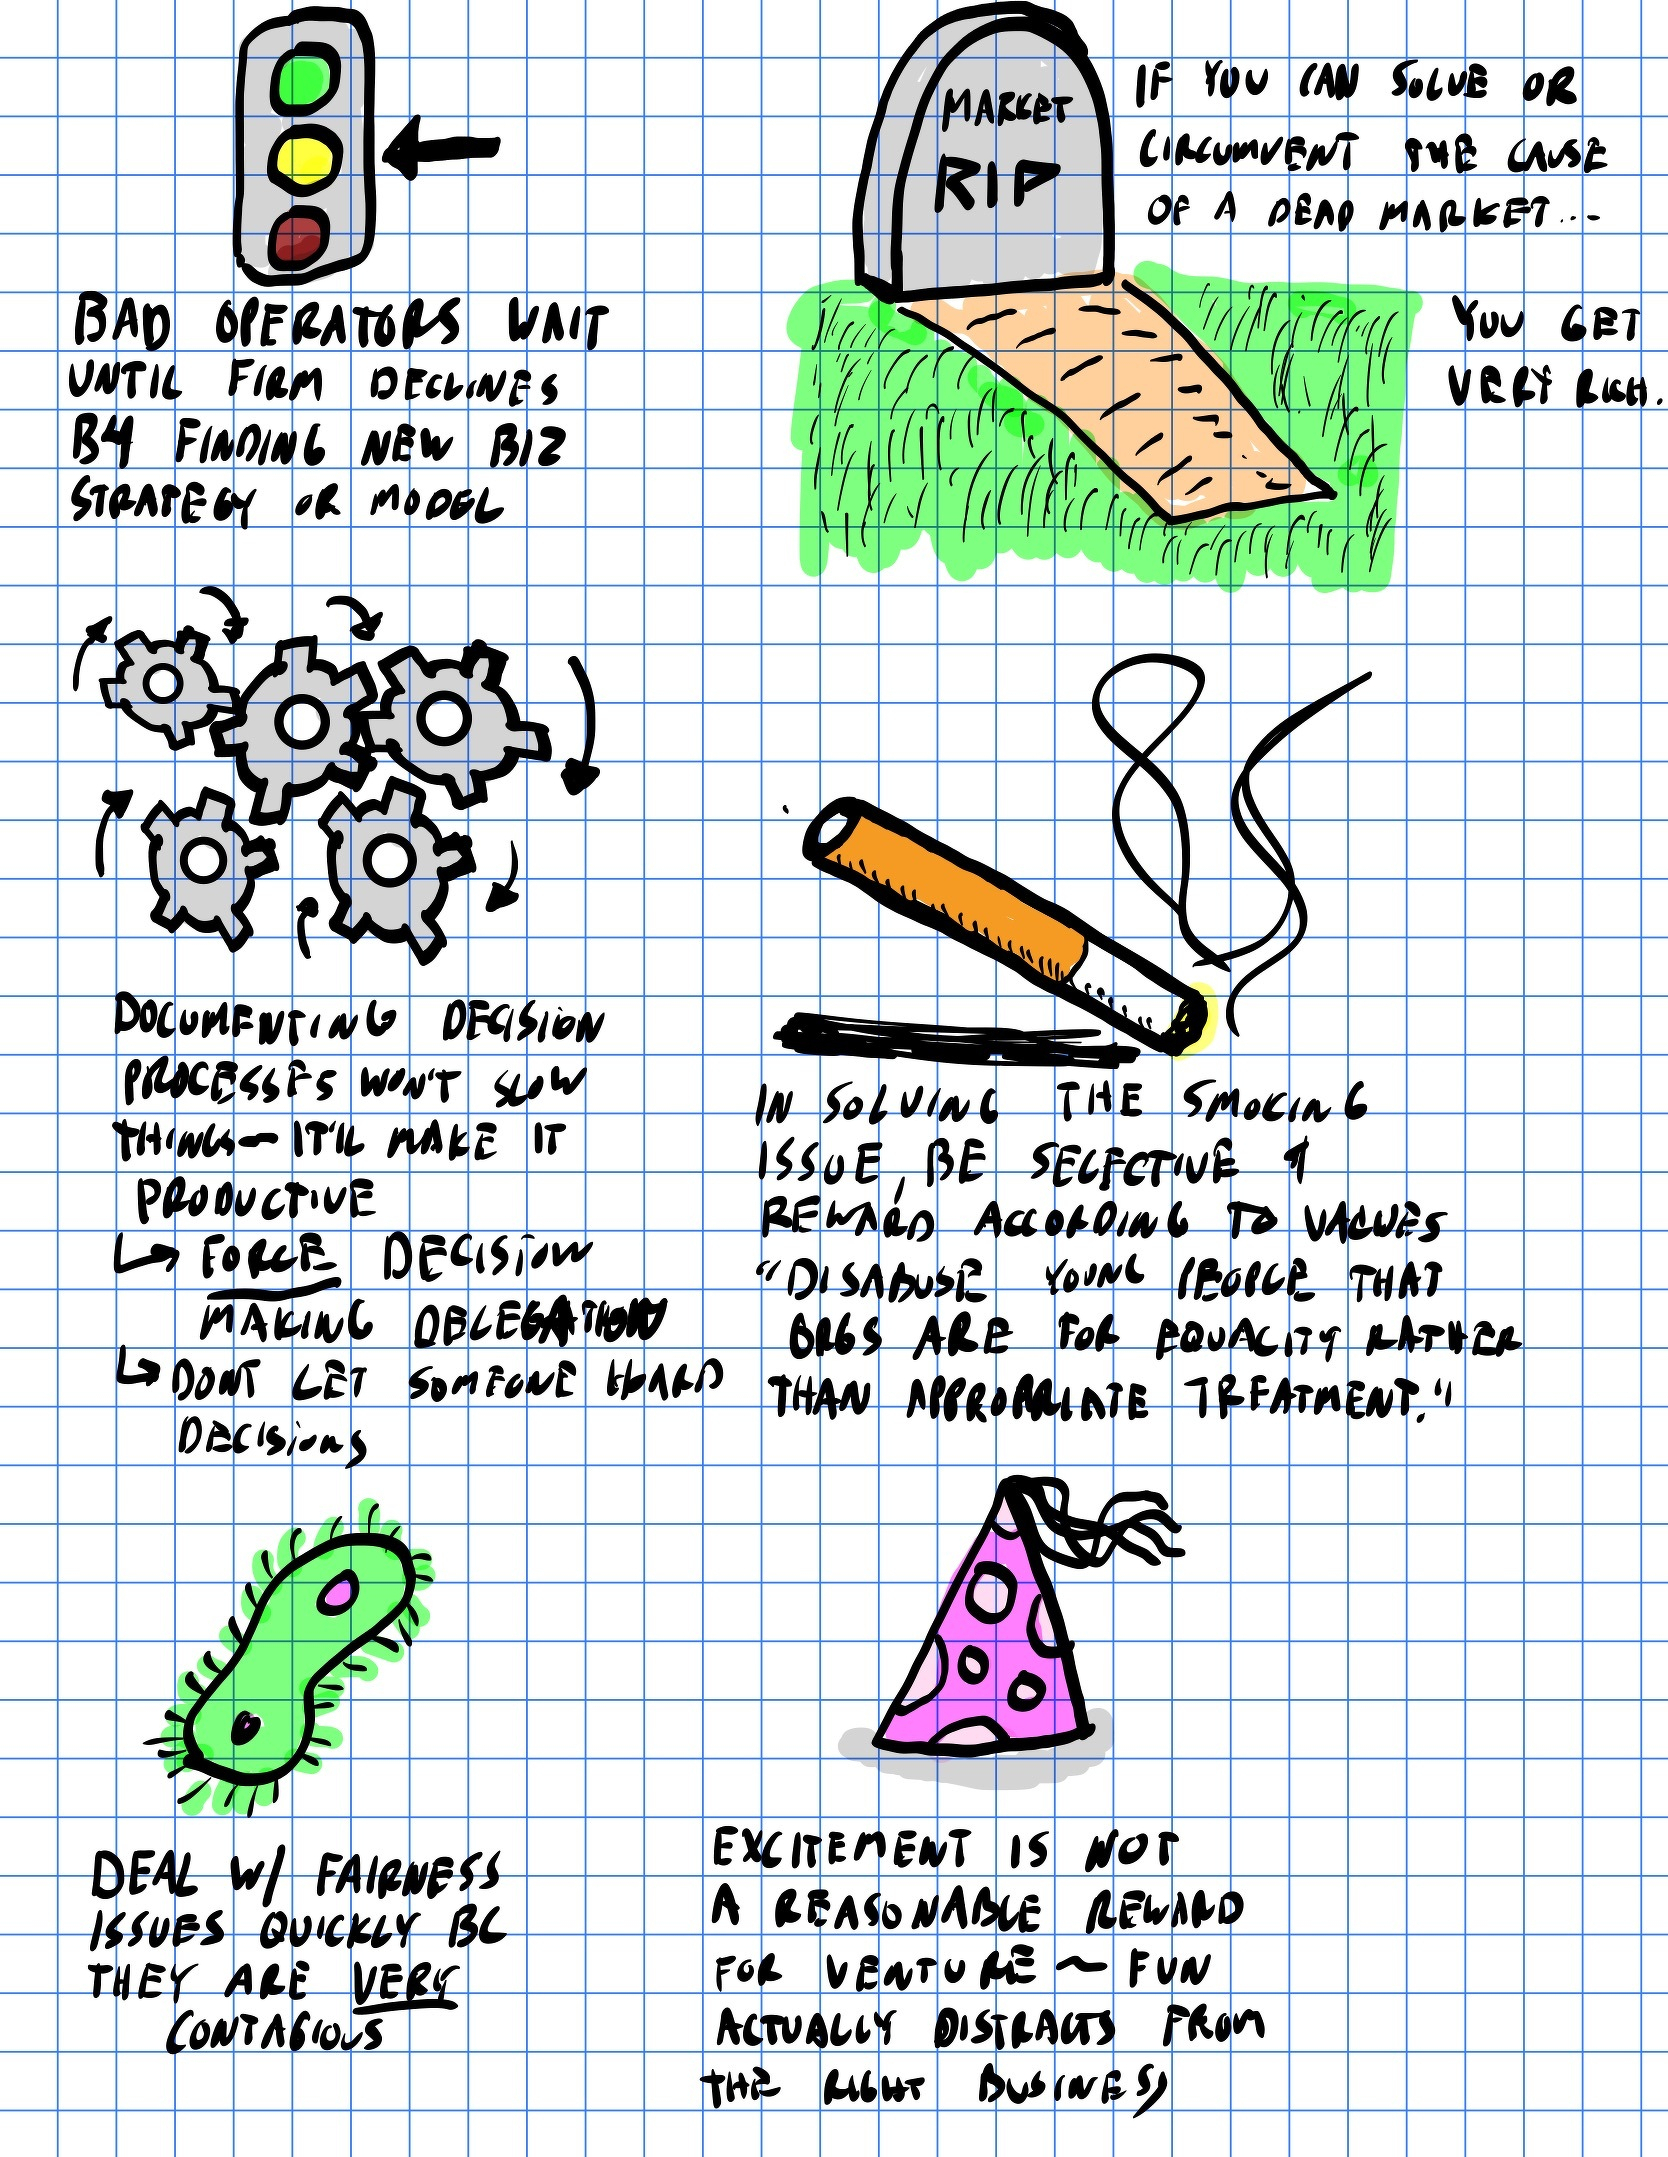 BAD OPERATORS WAIT
UNTIL FIRM DECLINES
B4 FINDING NEW BIZ
STRATEGY OR MODEL
MARKET
RIP
IF YOU CAN SOLVE OR
CIRCUMVENT THE CAUSE
OF A DEAD MARKET...
YOU GET
VERY RICH.
DOCUMENTING DECISION
PROCESSES WON'T SLOW
THINGS— IT'LL MAKE IT
PRODUCTIVE
↳ FORCE DECISION
MAKING DELEGATION
↳ DONT LET SOMEONE HOARD
DECISIONS
IN SOLVING THE SMOKING
ISSUE, BE SELECTIVE &
REWARD ACCORDING TO VALUES
"DISABUSE YOUNG PEOPLE THAT
ORGS ARE FOR EQUALITY RATHER
THAN APPROPRIATE TREATMENT."
DEAL W/ FAIRNESS
ISSUES QUICKLY BC
THEY ARE VERY
CONTAGIOUS
EXCITEMENT IS NOT
A REASONABLE REWARD
FOR VENTURE ~ FUN
ACTUALLY DISTRACTS FROM
THE RIGHT BUSINESS